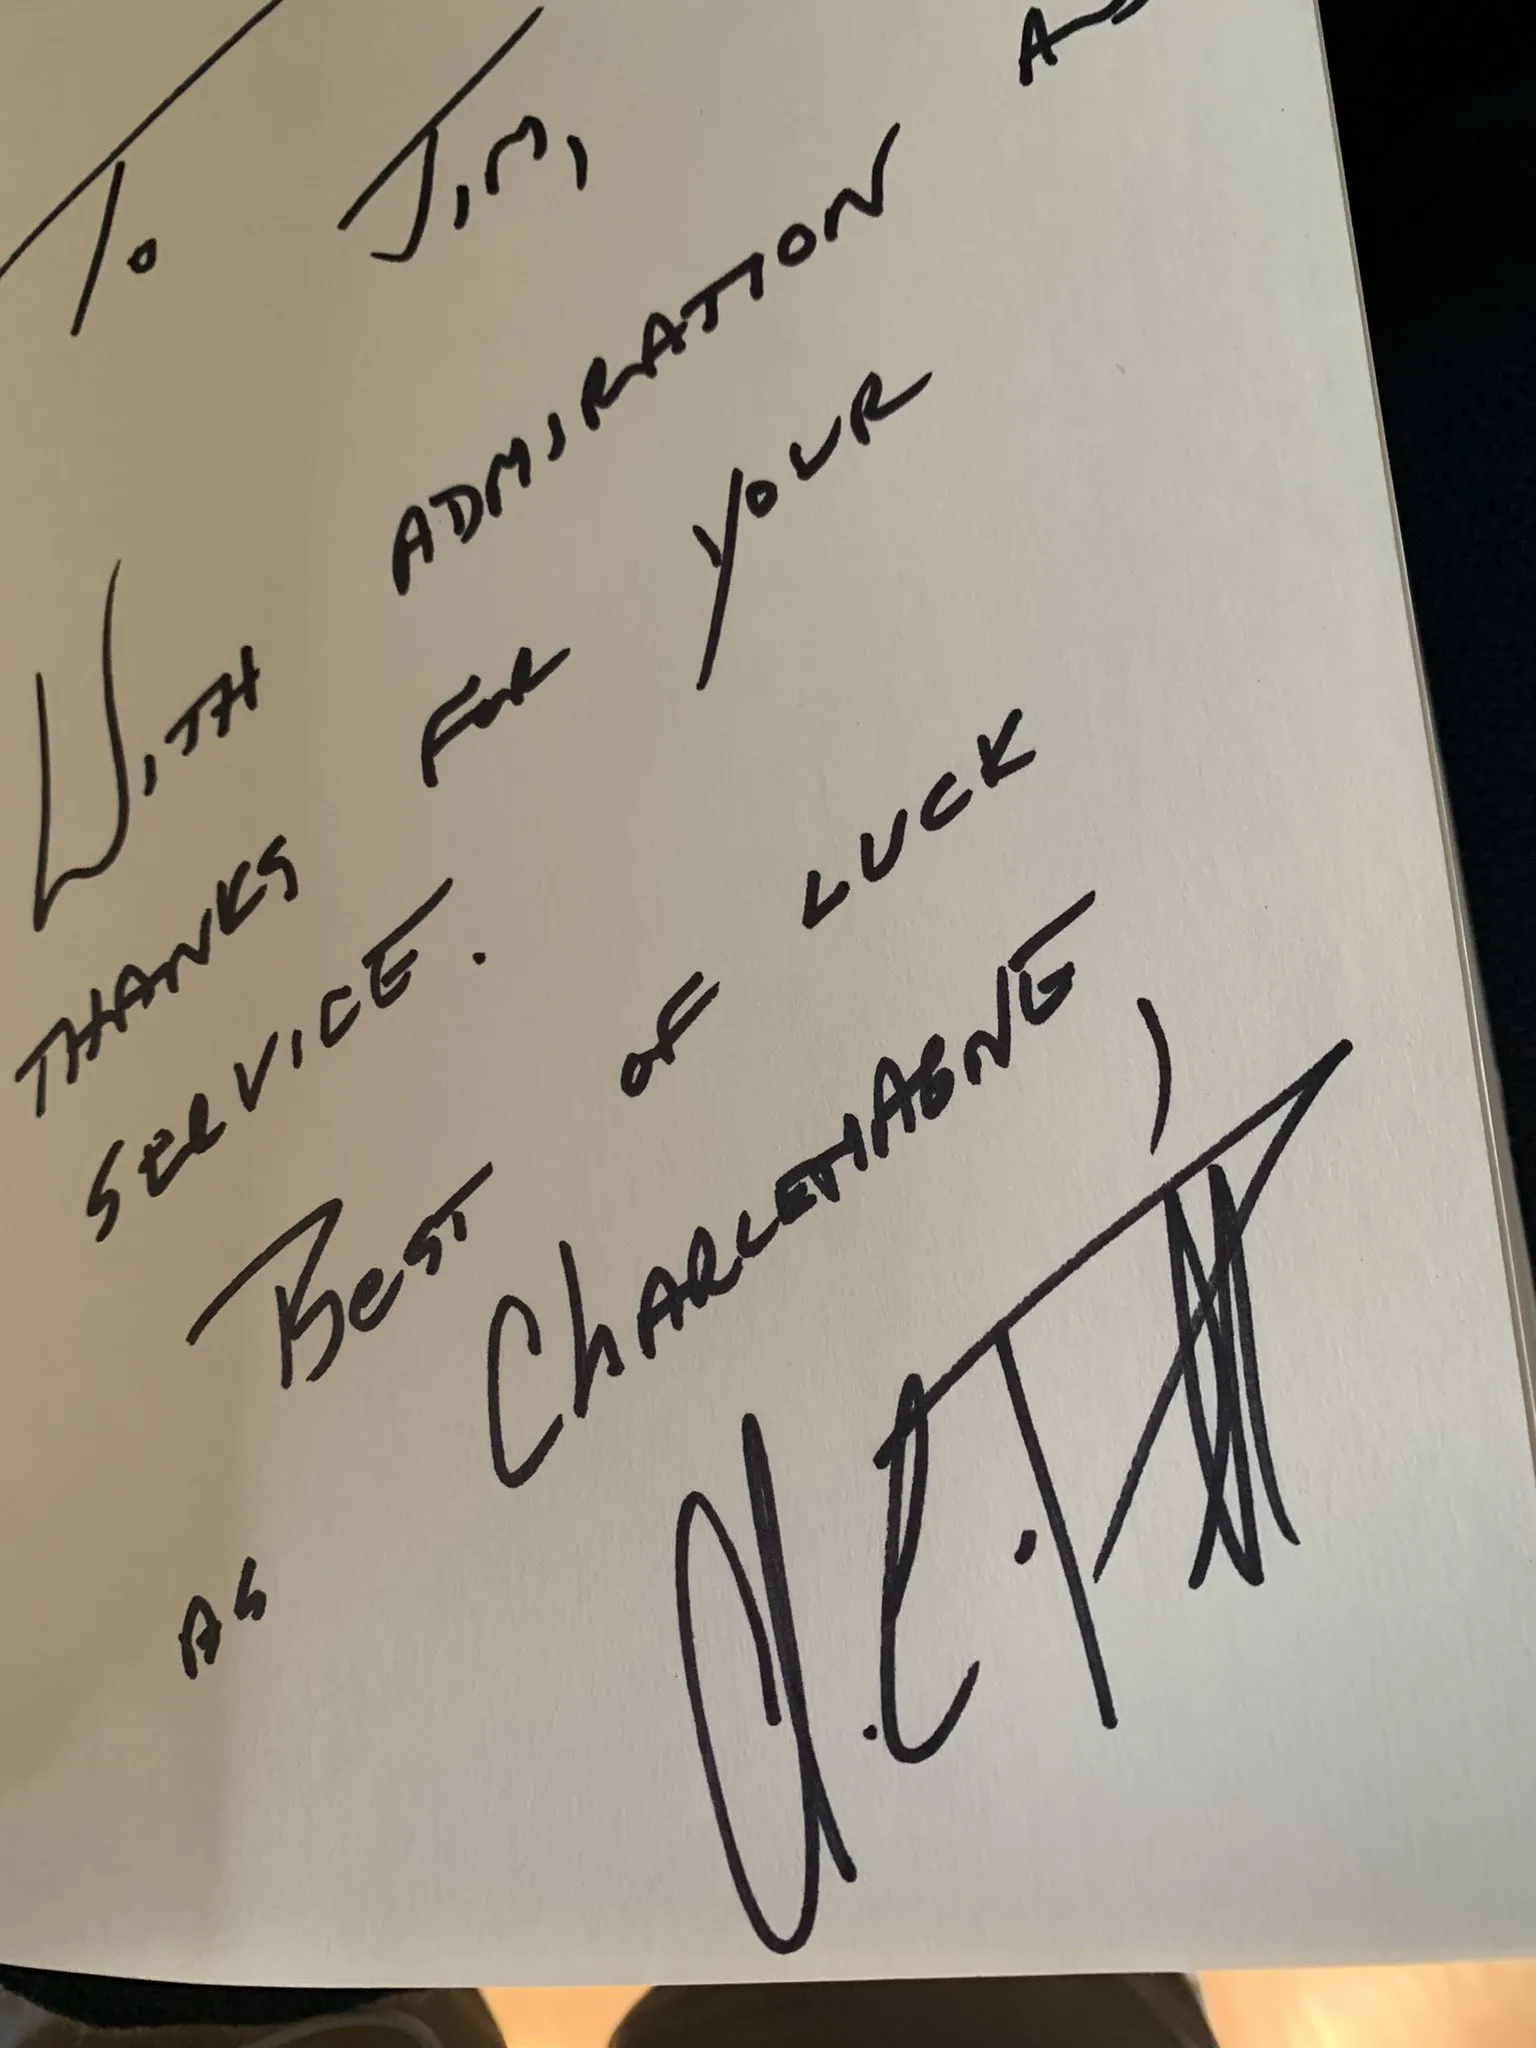 To Jim,
With ADMIRATION AND
THANKS FOR YOUR
SERVICE.
Best OF LUCK
AS ChARLEMAGNE,